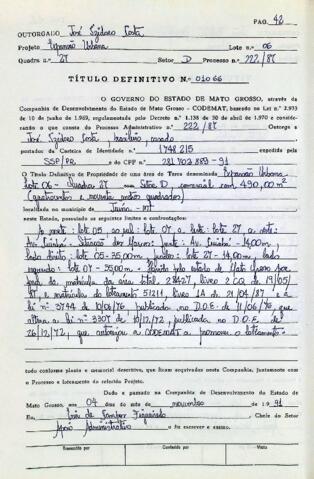 PAG. 42
OUTORGADO José Izidoro Costa
Projeto Expansão Urbana Lote nº 06
Quadra nº 27 Setor D Processo nº 222/87
TÍTULO DEFINITIVO Nº 01066
O GOVERNO DO ESTADO DE MATO GROSSO, através da
Companhia de Desenvolvimento do Estado de Mato Grosso - CODEMAT, com base na Lei nº 2.973
de 10 de junho de 1969, regulamentada pelo Decreto nº 1.138 de 30 de abril de 1970 e conside-
rando o que consta do Processo Administrativo nº 222/87 Outorga a
José Izidoro Costa, brasileiro, casado
portador da Carteira de Identidade nº 1748215 expedida pela
SSP/PR e do CPF nº 281702889-91
O Título Definitivo de Propriedade de uma área de Terra denominada Expansão Urbana
Lote 06 - Quadra 27 Setor D, comercial com 490,00 m²
(quatrocentos e noventa metros quadrados)
localizada no município de Juína - MT
neste Estado, possuindo os seguintes limites e confrontações:
Ao norte: lote 05 ao sul: lote 07 a leste: lote 27, a oeste:
Av. Cuiabá - Situação dos Marcos: frente: Av. Cuiabá - 14,00m,
lado direito: lote 05 - 35,00m, fundos: lote 27 - 14,00m, lado
esquerdo: lote 07 - 35,00m. Havido pelo estado de Mato Grosso por
força da matrícula da área total livro 2 CQ de 19/05/
87, e matrícula do loteamento 51211, livro 1A de 21/04/87 e a
lei nº 3744 de 10/06/76, publicada no D.O.E. de 11/06/76, que
altera a lei nº 3307 de 18/12/72, publicada no D.O.E. de
26/12/72, que autorizou a CODEMAT a promover o loteamento.
tudo conforme planta e memorial descritivo, que ficam arquivados nesta Companhia, juntamente com
o Processo e loteamento do referido Projeto.
Dado e passado na Companhia de Desenvolvimento do Estado de
Mato Grosso, aos 04 dias do mês de novembro de 1991
Eu, Inês de Campos Figueiredo, Chefe do Setor
Apoio Administrativo o fiz escrever e assino.
Transcrito por Conferido por Visto